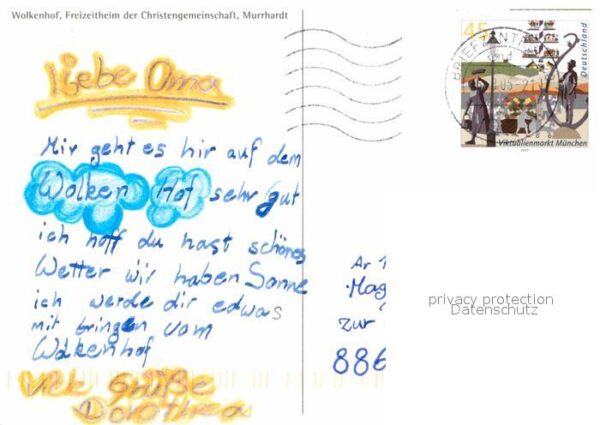 Wolkenhof, Freizeitheim der Christengemeinschaft, Murrhardt
Liebe Oma
Mir geht es hir auf dem
Wolken Hof sehr gut
ich hoff du hast schönes
Wetter wir haben Sonne
ich werde dir edwas
mit bringen vom
Wolkenhof
Viele Grüße
Dorothea
45
Deutschland
BRIEFZENTR
Viktualienmarkt München
Mag
zur
886
privacy protection
Datenschutz